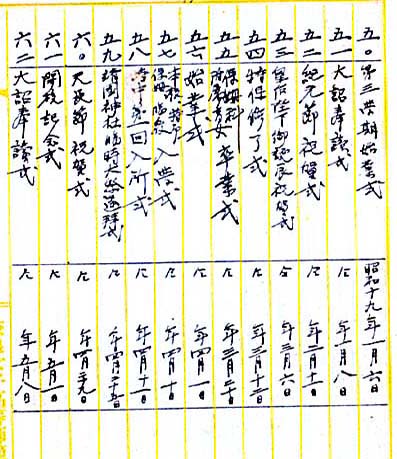 五〇 第三学期始業式 昭和十九年一月六日
五一 大詔奉読式 〃 年一月八日
五二 紀元節祝賀式 〃 年二月十一日
五三 皇后陛下御誕辰祝賀式 〃 年三月六日
五四 特保修了式 〃 年三月十二日
五五 保姆科 卒業式 〃 年三月二十日
五六 始業式 〃 年四月一日
五七 入学式 〃 年四月十日
五八 第一回入所式 〃 年四月十一日
五九 靖国神社臨時大祭遥拝式 〃 年四月二十五日
六〇 天長節祝賀式 〃 年四月二十九日
六一 開校記念式 〃 年五月一日
六二 大詔奉読式 〃 年五月八日